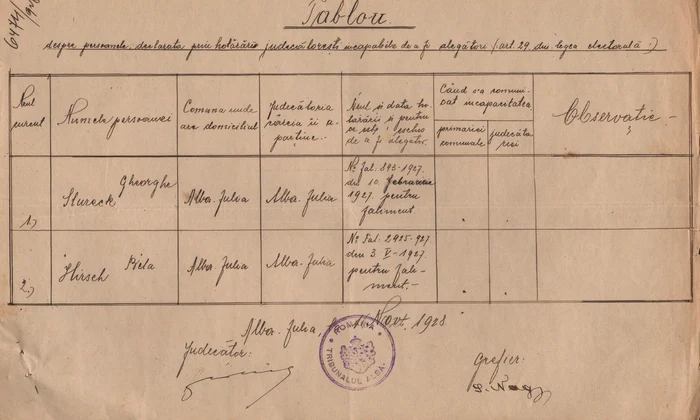 6474/928
Tablou
despre persoanele, declarate prin hotărâre judecătorești incapabile de a fi alegători (art. 29 din legea electorală.)
Nrul curent
Numele persoanei
Comuna unde are domiciliul
Judecătoria căreia îi aparține.
Nrul și data hotărârii și pentru ce este exclus de a fi alegător.
Când s'a comunicat incapacitatea
primăriei comunale
judecătoresei
Observație.
1.)
Stureck Gheorghe
Alba-Julia
Alba-Julia
No Fal. 893-1927.
din 10 februarie
1927. pentru
faliment.
2.)
Hirsch Bela
Alba-Julia
Alba-Julia
No Fal. 2925-927
din 3 V-1927.
pentru fali-
ment.-
Alba-Julia, Novr. 1928
Judecător:
ROMÂNIA
TRIBUNALUL ALBA
Grefier:
S. Nagy